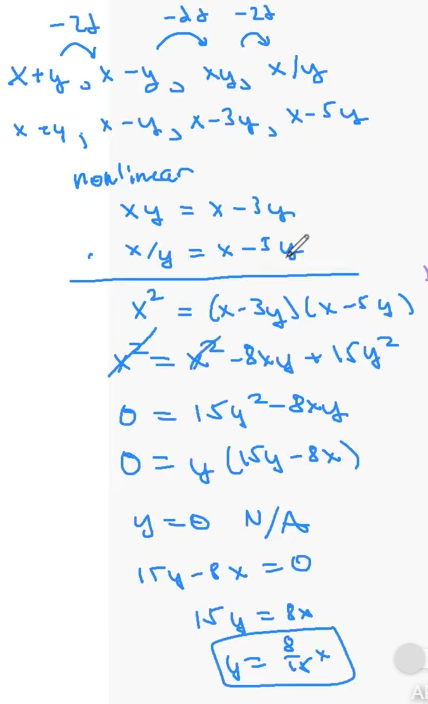 -2y -2y -2y
x+y, x-y, xy, x/y
x+y, x-y, x-3y, x-5y
nonlinear
xy = x-3y
. x/y = x-5y
x² = (x-3y)(x-5y)
x² = x² -8xy + 15y²
0 = 15y² - 8xy
0 = y (15y - 8x)
y = 0 N/A
15y - 8x = 0
15y = 8x
y = 8/15 x